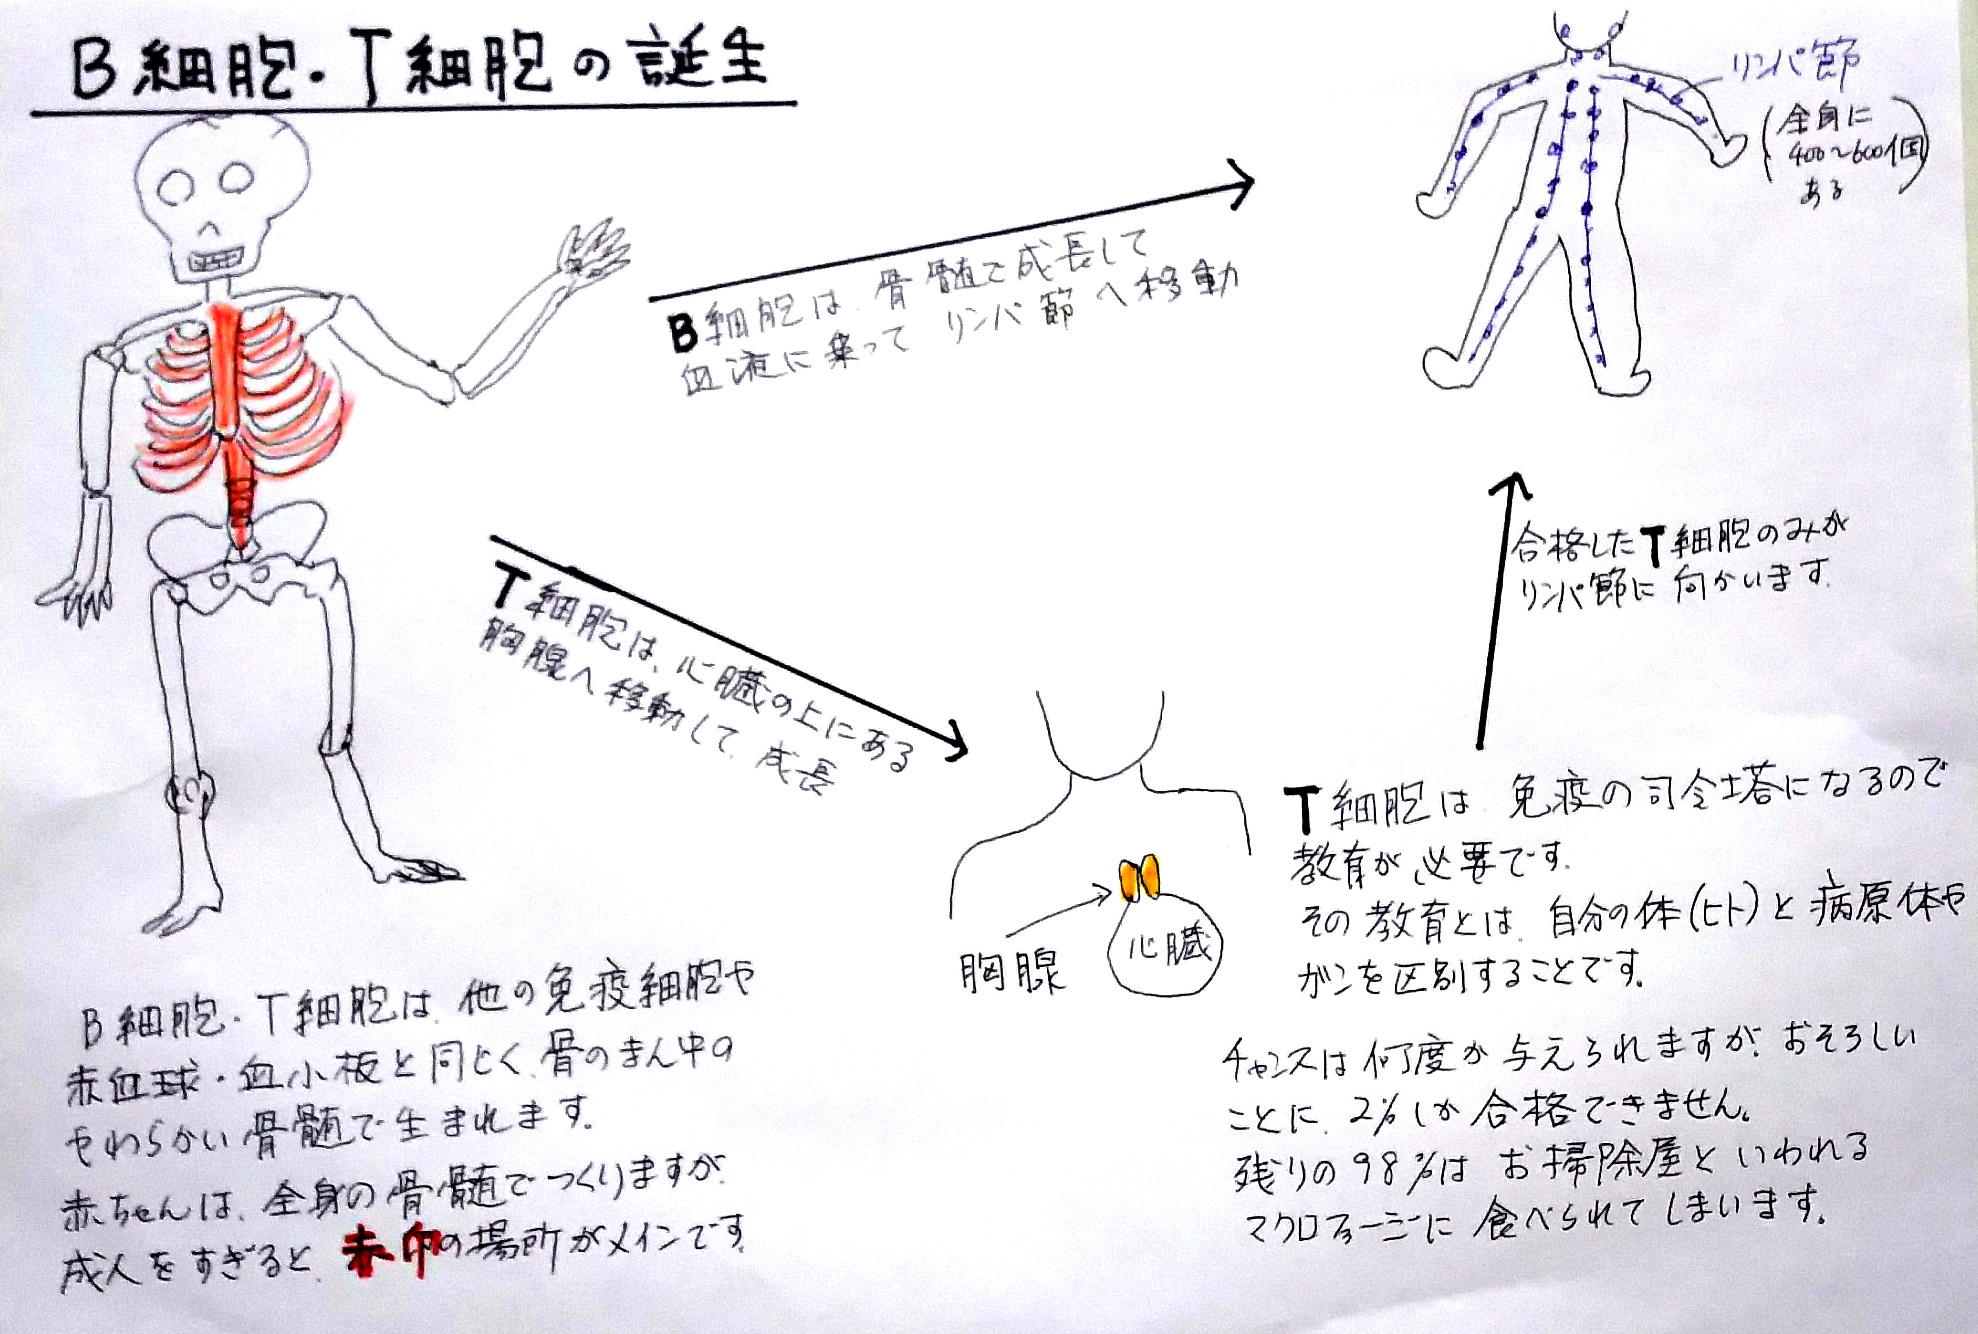 B細胞・T細胞の誕生
リンパ節
(全身に
400〜600個
ある)
B細胞は、骨髄で成長して
血液に乗って リンパ節へ移動
合格したT細胞のみが
リンパ節に向かいます。
T細胞は、心臓の上にある
胸腺へ移動して、成長
胸腺
心臓
T細胞は 免疫の司令塔になるので
教育が必要です。
その教育とは、自分の体(ヒト)と病原体や
ガンを区別することです。
チャンスは何度か与えられますが、おそろしい
ことに、2%しか合格できません。
残りの98%は お掃除屋といわれる
マクロファージに食べられてしまいます。
B細胞・T細胞は、他の免疫細胞や
赤血球・血小板と同じく、骨のまん中の
やわらかい骨髄で生まれます。
赤ちゃんは、全身の骨髄でつくりますが、
成人をすぎると、赤印の場所がメインです。